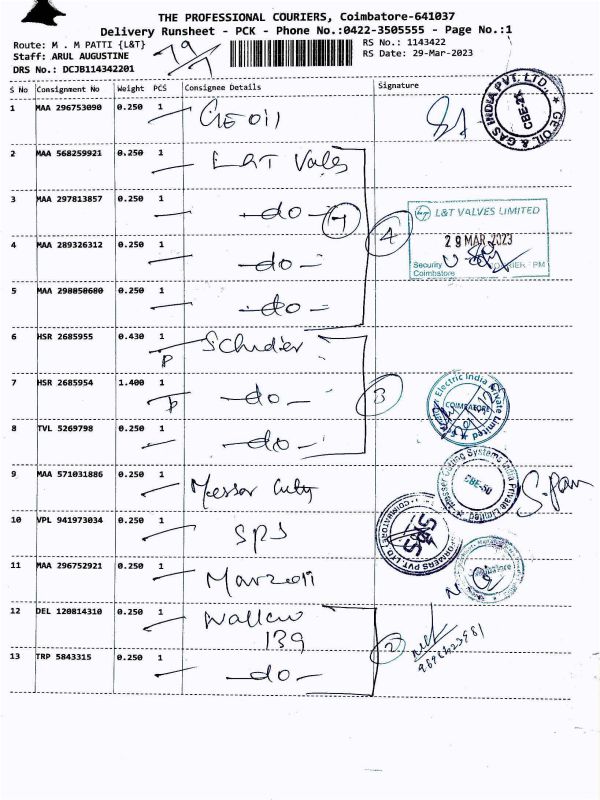 THE PROFESSIONAL COURIERS, Coimbatore-641037
Delivery Runsheet - PCK - Phone No.:0422-3505555 - Page No.:1
Route: M . M PATTI {L&T}
RS No.: 1143422
Staff: ARUL AUGUSTINE
RS Date: 29-Mar-2023
DRS No.: DCJB114342201
S No Consignment No Weight PCS Consignee Details Signature
1 MAA 296753090 0.250 1 GE Oil
GE OIL & GAS INDIA PVT. LTD.
2 MAA 568259921 0.250 1 L&T Vales
3 MAA 297813857 0.250 1 -do-
4
L&T VALVES LIMITED
29 MAR 2023
Security
Coimbatore
4 MAA 289326312 0.250 1 -do-
5 MAA 298858680 0.250 1 -do-
6 HSR 2685955 0.430 1 P
7 HSR 2685954 1.400 1 P -do-
3
Electric India Private Limited
COIMBATORE
8 TVL 5269798 0.250 1 -do-
9 MAA 571031886 0.250 1 Messer
Messer Cutting Systems India Private Limited
CBE-50
10 VPL 941973034 0.250 1 SPS
11 MAA 296752921 0.250 1
12 DEL 120814310 0.250 1
139
2
13 TRP 5843315 0.250 1 -do-